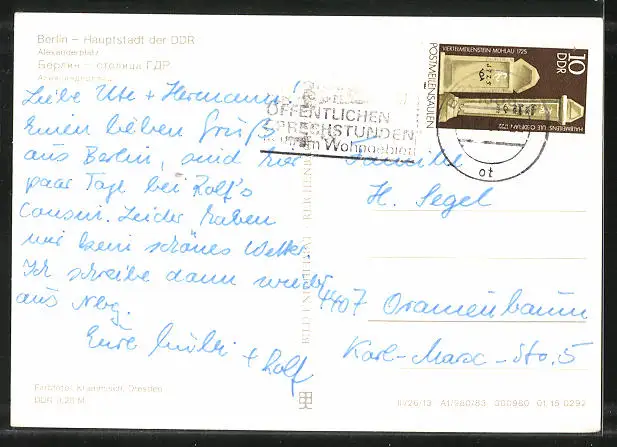 Berlin – Hauptstadt der DDR
Alexanderplatz
Берлин – столица ГДР
Александерплац
Liebe Ute + Hermann!
Einen lieben Gruß
aus Berlin, sind hier
paar Tage bei Rolf's
Cousin. Leider haben
wir kein schönes Wetter.
Ich schreibe dann wieder
aus Nbg.
Eure
+ Rolf
Farbfoto: Dresden
DDR 0,20 M
BILD UND HEIMAT REICHENBACH
ÖFFENTLICHEN
SPRECHSTUNDEN
im Wohngebiet
10
DDR
POSTMEILENSÄULEN
VIERTELMEILENSTEIN MÜHLAU 1725
HALBMEILENSÄULE OEDERAN 1722
ot
Familie
H. Segel
4407 Oranienbaum
Karl-Marx-Str. 5
III/26/13 A1/980/83 300980 01 15 0292